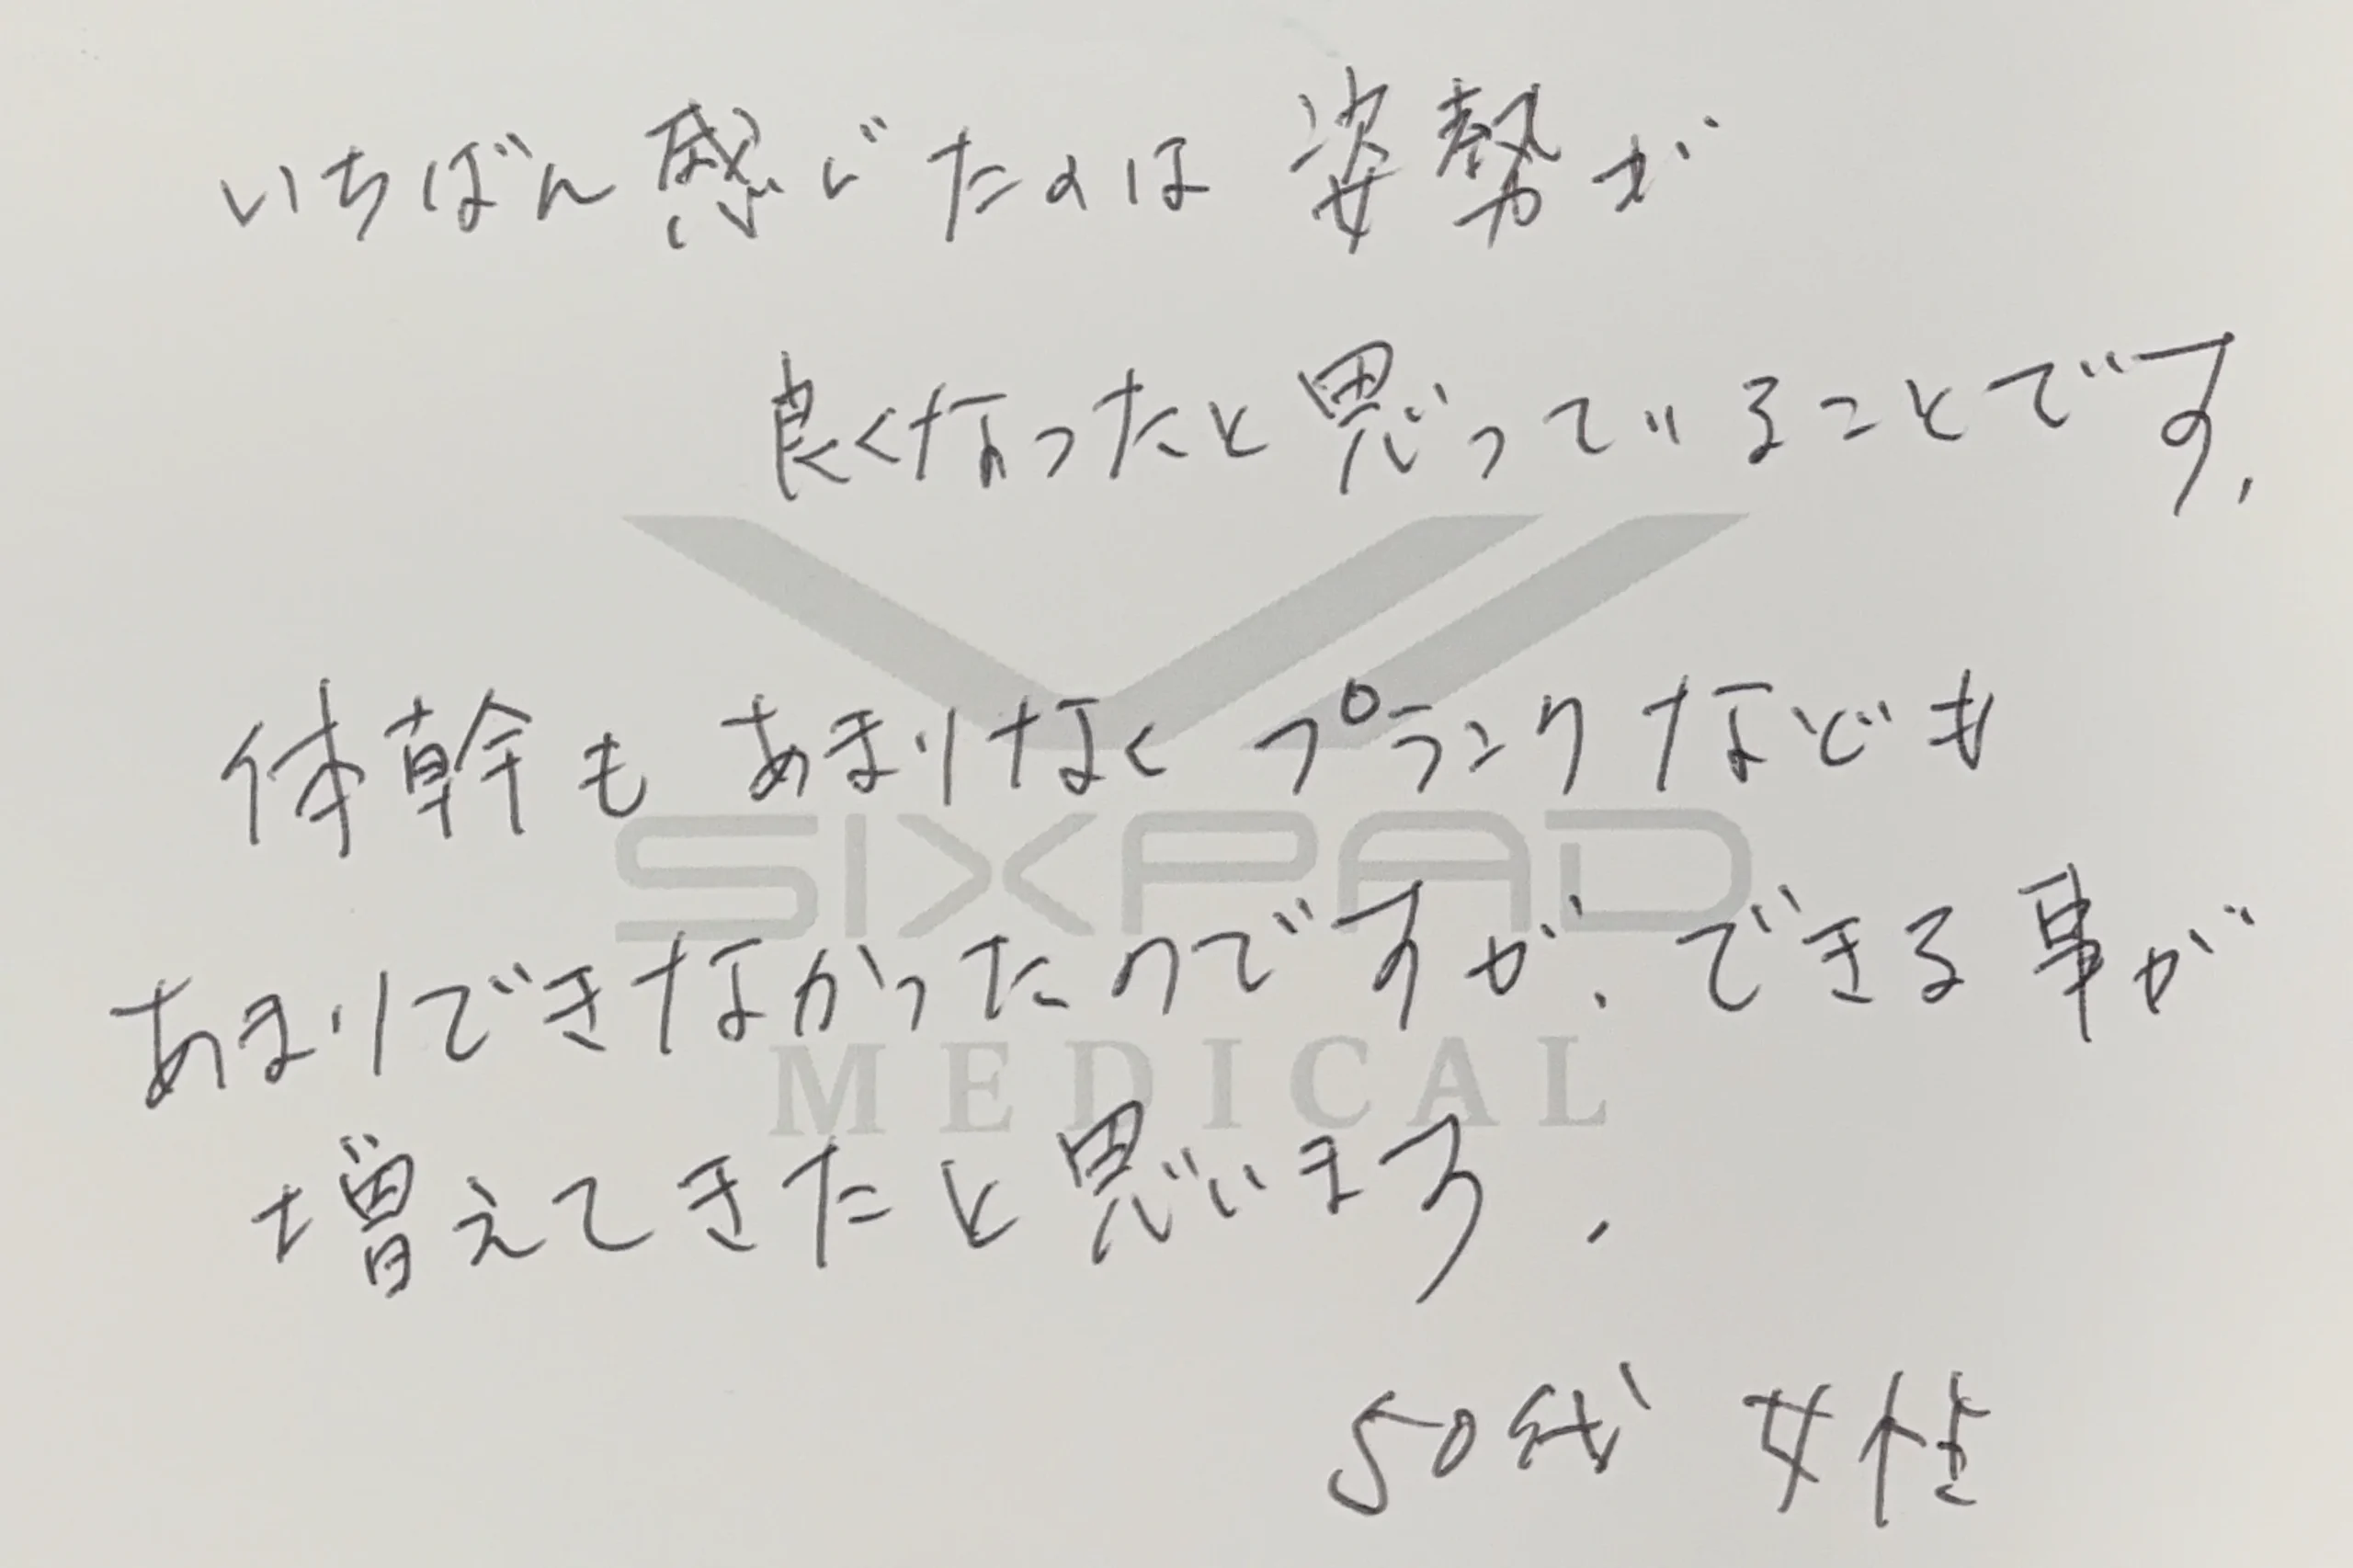 いちばん感じたのは 姿勢が
良くなったと思っていることです.
体幹も あまりなく プランクなども
SIXPAD
あまりできなかったのですが、できる事が
MEDICAL
増えてきたと思います.
50代 女性